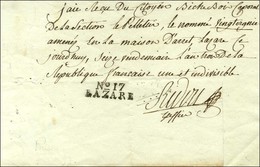 jaie Reçu du Citoyen
De la Section le Pelletier, le nommé
amenés en la maison D'arret, Lazare le
jourdhuy, Seize vendemiair L'an 3 De la
République francaise une et indivisible.
No 17
LAZARE
Greffier